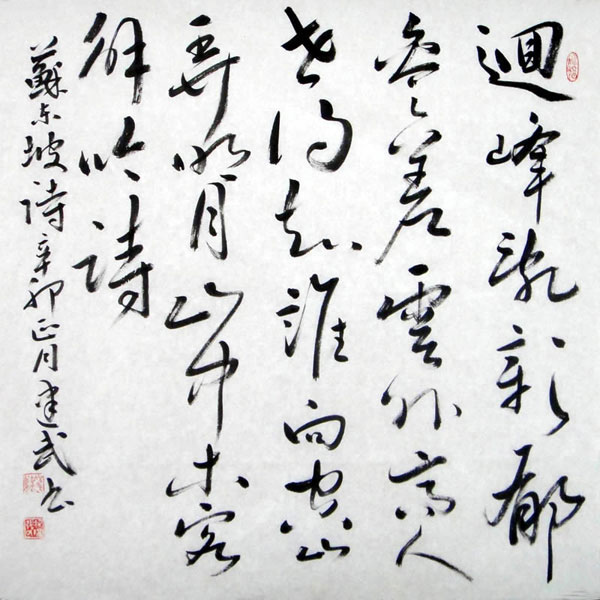 迴峰亂彰郁
參差雲外高人
世得知誰向空山
弄明月山中木客
解吟詩
蘇东坡詩辛卯正月建武书